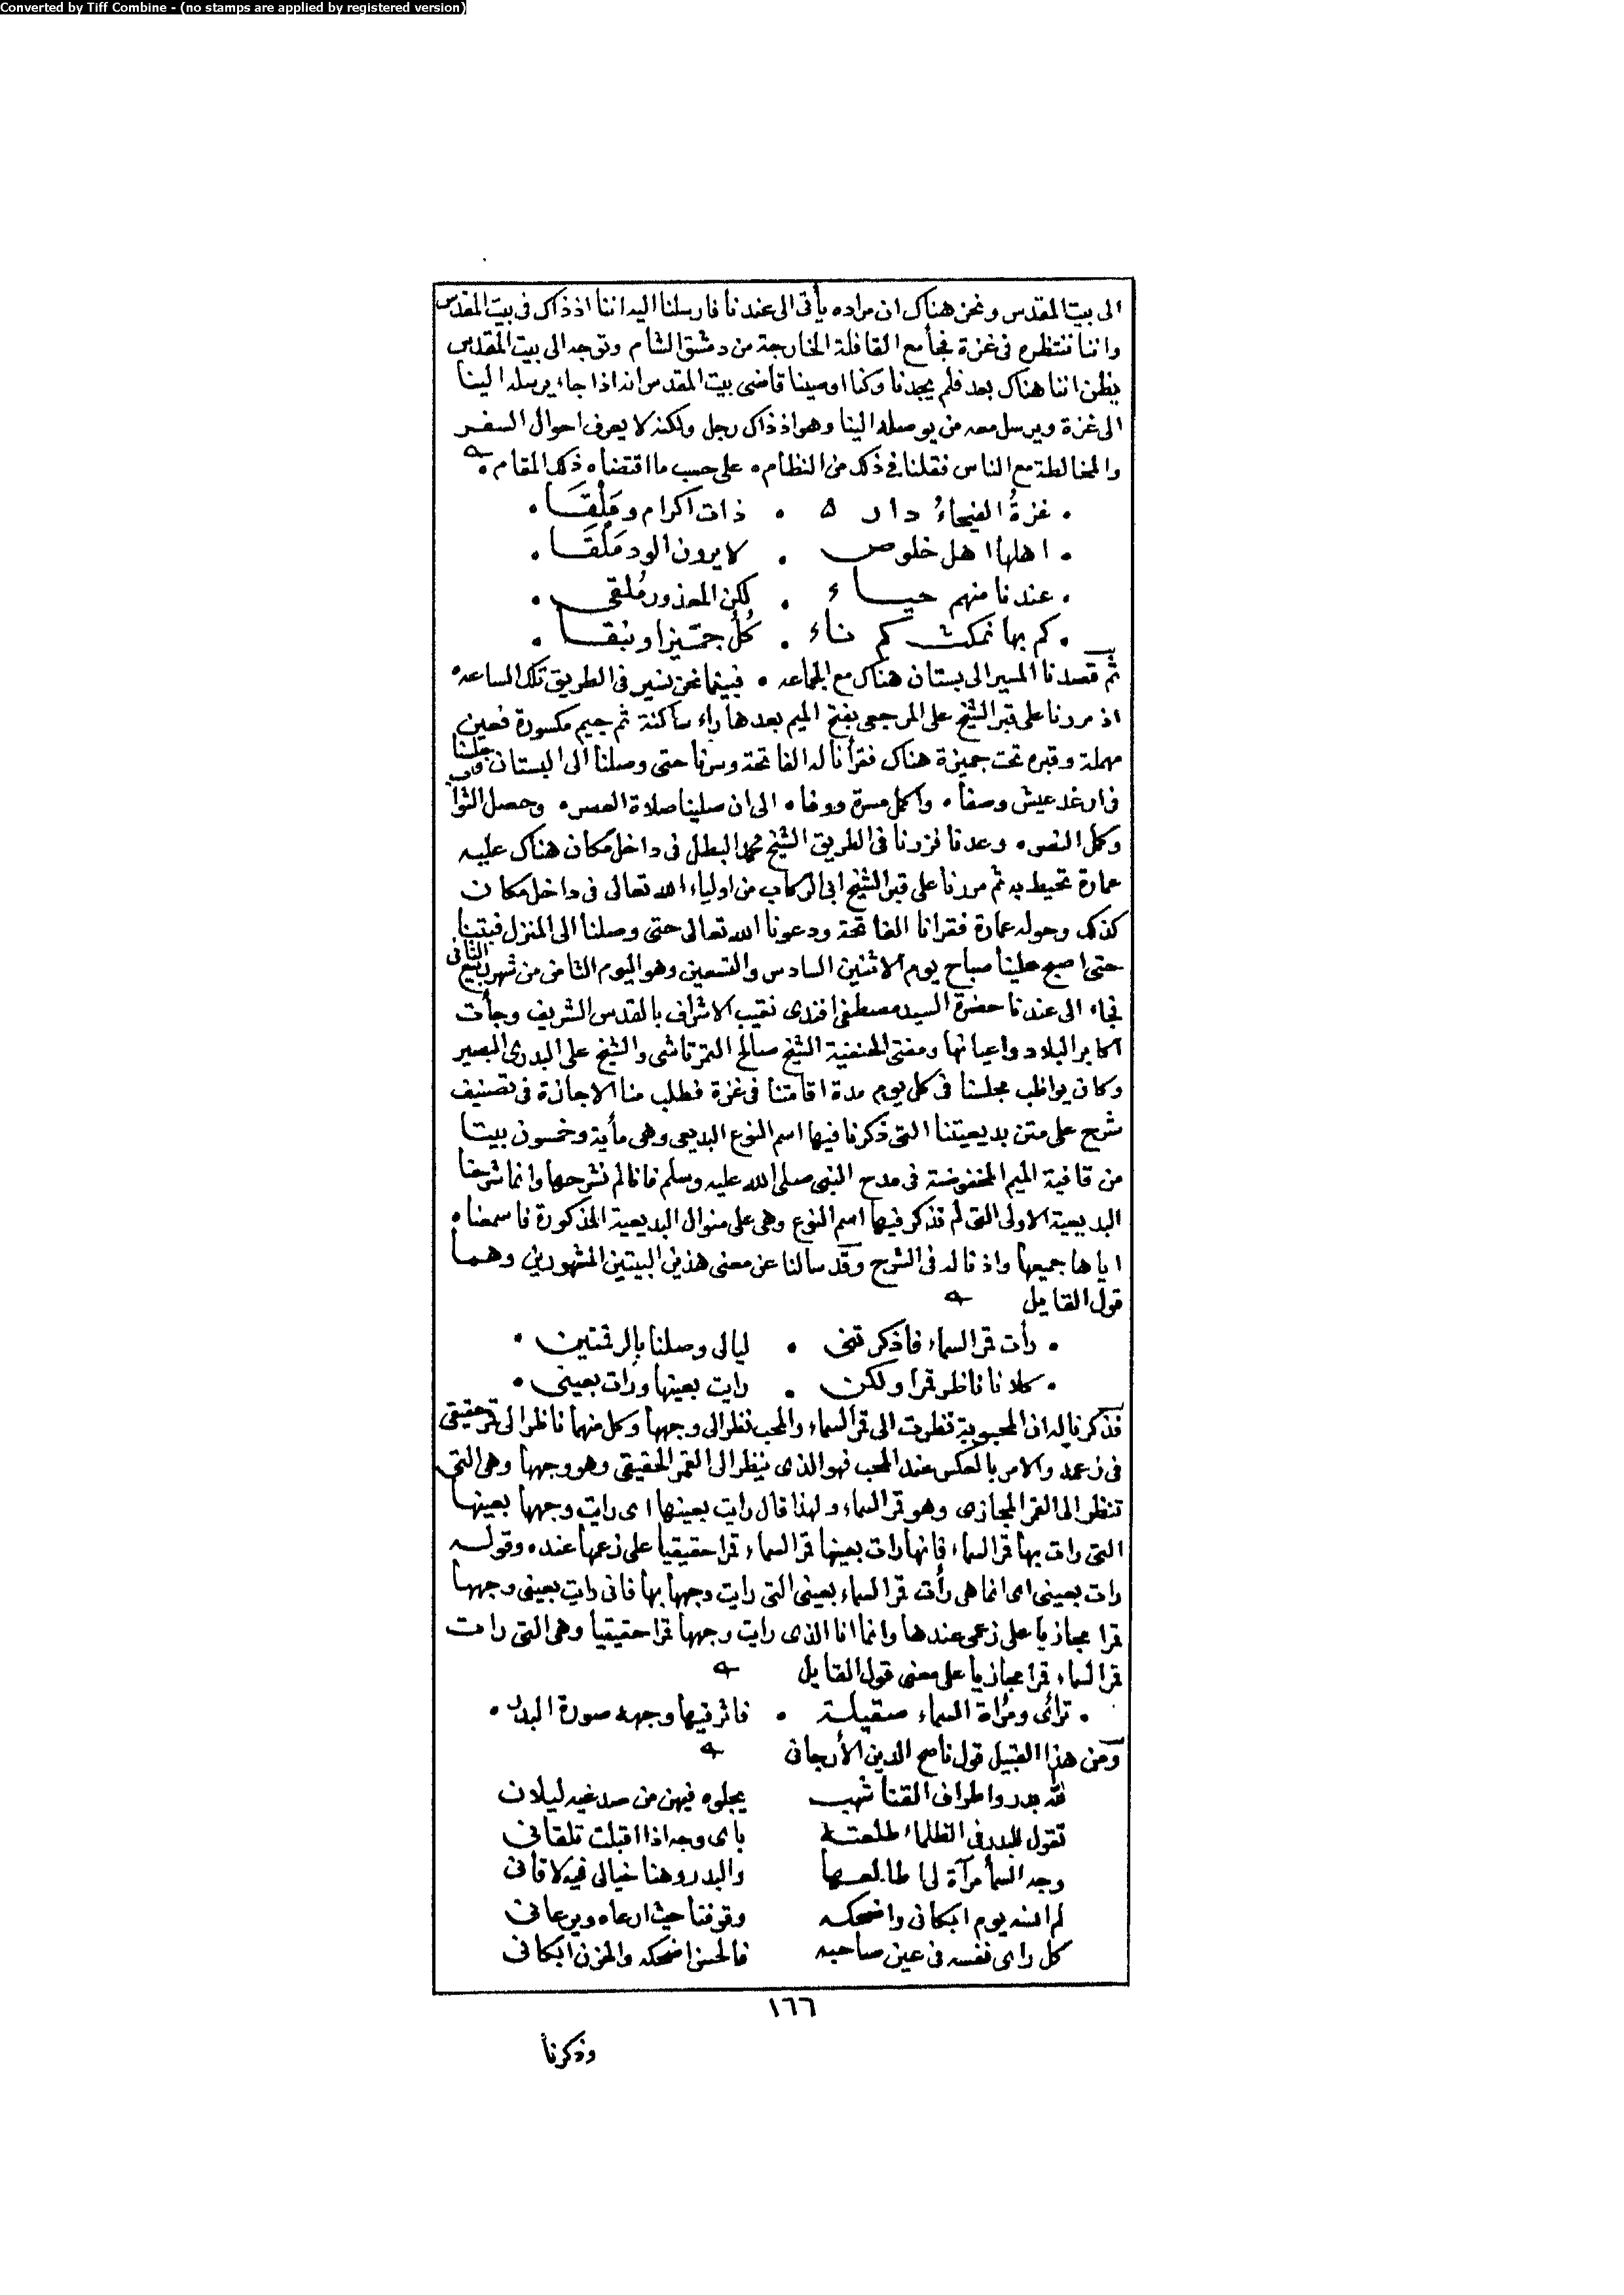 Converted by Tiff Combine - (no stamps are applied by registered version)
الى بيت المقدس ونحن هناك ان مراده يأتى الى عندنا فارسلنا اليه اننا اذ ذاك فى بيت المقدس
واننا ننتظره فى غزة فجأ مع القافلة الخارجة من دمشق الشام وتوجه الى بيت المقدس
يظن اننا هناك بعد فلم يجدنا وكنا اوصينا قاضى بيت المقدس انه اذا جاء يرسله الينا
الى غزة ويرسل معه من يوصله الينا وهو اذ ذاك رجل ولكنه لا يعرف احوال السفر
والمخالطة مع الناس فقلنا فى ذلك من النظام ، على حسب ما اقتضاه ذلك المقام ،
. غزةُ الفيحاءُ دار . ذات اكرام ومَلْقَا .
. اهلها اهل خلوص . لا يرون الود مَلَقَا .
. عندنا منهم حياء . لكن المعذور مُلقى .
. كم بها نمكث كم ناء . كُلُ جمّيزا ونبقا .
ثم قصدنا المسير الى بستان هناك مع الجماعه ، فبينما نحن نسير فى الطريق تلك الساعه ،
اذ مررنا على قبر الشيخ على المرجعى بفتح الميم بعدها راء ساكنة ثم جيم مكسورة فعين
مهملة وقبره تحت جميزة هناك فقرأنا له الفاتحة وسرنا حتى وصلنا الى البستان وجلسنا
فى ارغد عيش وصفأ ، واكمل مسرة ووفاء ، الى ان صلينا صلاة العصر ، وحصل الثوا
وكمل النصر ، وعدنا فزرنا فى الطريق الشيخ محمد البطل فى داخل مكان هناك عليه
عمارة تحيط به ثم مررنا على قبر الشيخ ابى الركاب من اولياء الله تعالى فى داخل مكان
كذلك وحوله عمارة فقرانا الفاتحة ودعونا الله تعالى حتى وصلنا الى المنزل فبتنا
حتى اصبح علينا صباح يوم الاثنين السادس والتسعين وهو اليوم الثامن من شهر ربيع الثانى
فجاء الى عندنا حضرة السيد مصطفى افندى نقيب الاشراف بالقدس الشريف وجأت
اكابر البلاد واعيانها ومفتى الحنفية الشيخ صالح التمرتاشى والشيخ على البدرى البصير
وكان يواظب مجلسنا فى كل يوم مدة اقامتنا فى غزة فطلب منا الاجازة فى تصنيف
شرح على متن بديعيتنا التى ذكرنا فيها اسم النوع البديعى وهى مأية وخمسون بيتا
من قافية الميم المخفوضة فى مدح النبى صلى الله عليه وسلم فانا لم نشرحها وانما شرحنا
البديعية الاولى التى لم نذكر فيها اسم النوع وهى على منوال البديعية المذكورة فاسمعناه
اياها جميعها واذنا له فى الشرح وقد سالنا عن معنى هذين البيتين المشهورين وهما
قول القايل
. رأت قمر السماء فاذكرتنى . ليالى وصلنا بالرقمتين .
. كلانا ناظر قمرا ولكن . رايت بعينها ورات بعينى .
فذكرنا له ان المحبوبة نظرت الى قمر السماء والمحب نظر الى وجهها وكل منهما ناظر الى قمر حقيقى
فى زعمه والامر بالعكس عند المحب فهو الذى ينظر الى القمر الحقيقى وهو وجهها وهى التى
تنظر الى القمر المجازى وهو قمر السماء ولهذا قال رايت بعينها اى رايت وجهها بعينها
التى رات بها قمر السماء فانها رات بعينها قمر السماء قمرا حقيقيا على زعمها عنده وقوله
رات بعينى اى انما هى رأت قمر السماء بعينى التى رايت وجهها بها فانى رايت بعينى وجهها
قمرا مجازيا على زعمى عندها وانما انا الذى رايت وجهها قمرا حقيقيا وهى التى رات
قمر السماء قمرا مجازيا على معنى قول القايل
. ترأى ومرْاة السماء صقيلة . فاثر فيها وجهه صورة البدر .
ومن هذا القبيل قول ناصح الدين الأرجانى
لله بدر واطراف القنا شهب يجلوه فيهن من صدغيه ليلان
تقول للبدر فى الظلماء طلعته باى وجه اذا اقبلت تلقانى
وجه السمأ مرآة لى اطالعها والبدر وهنا خيالى فيه لاقانى
لم انسه يوم ابكانى واضحكه وقوفنا حيث ارعاه ويرعانى
كل راى نفسه فى عين صاحبه فالحسن اضحكه والحزن ابكانى
١٦٦
وذكرنا